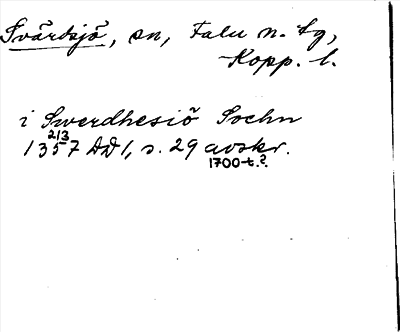 Svärdsjö, sn, Falu n. tg,
Kopp. l.
i Swerdhesiö Sochn
2/3
1357 DD 1, s. 29 avskr.
1700-t.?.